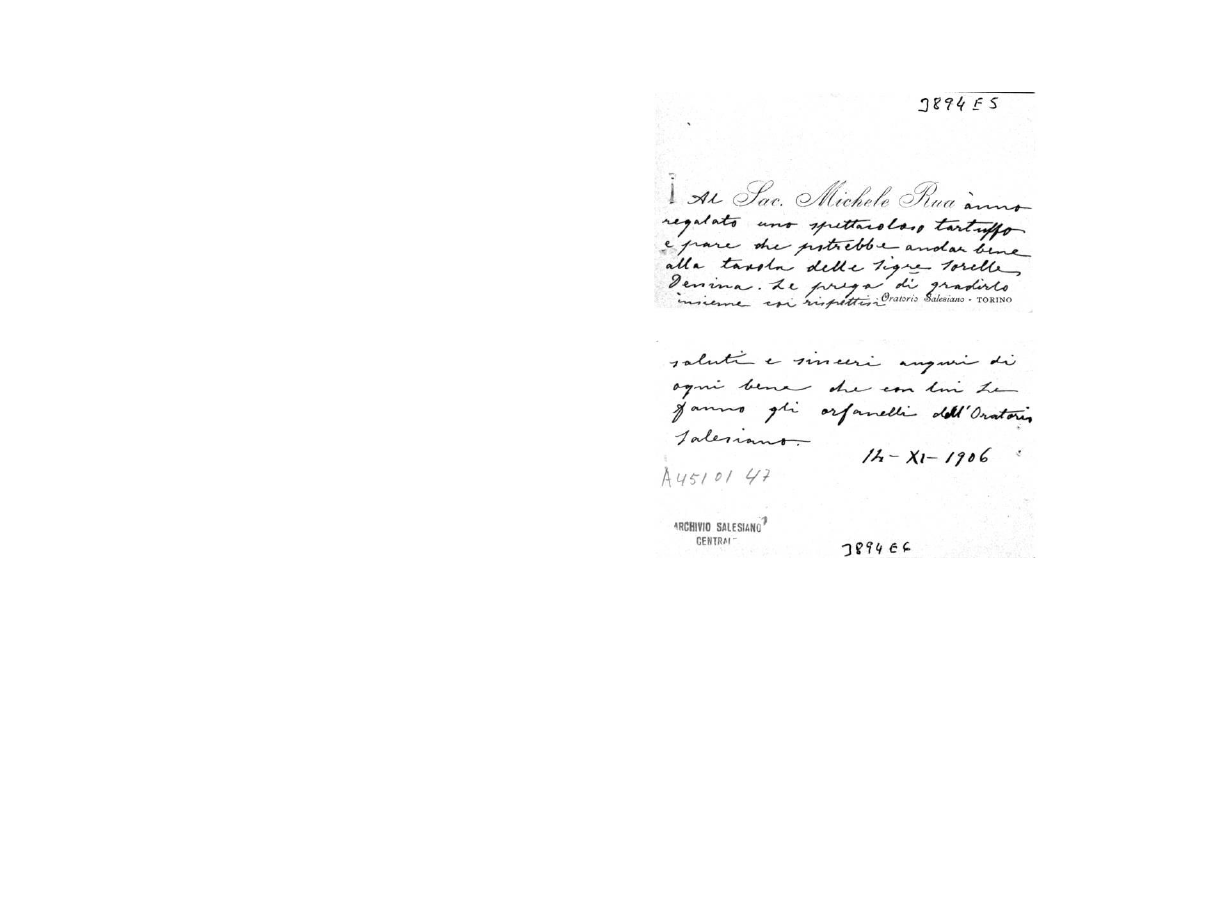 3894 E 5
Al Sac. Michele Rua ànno
regalato uno spettacoloso tartuffo
e pare che potrebbe andar bene
alla tavola delle Sigre Sorelle
Denina. Le prega di gradirlo
insieme coi rispettosi
Oratorio Salesiano - TORINO
saluti e sinceri auguri di
ogni bene che con lui Le
fanno gli orfanelli dell'Oratorio
Salesiano.
14-XI-1906
A4510147
ARCHIVIO SALESIANO
CENTRAL
3894 E 6